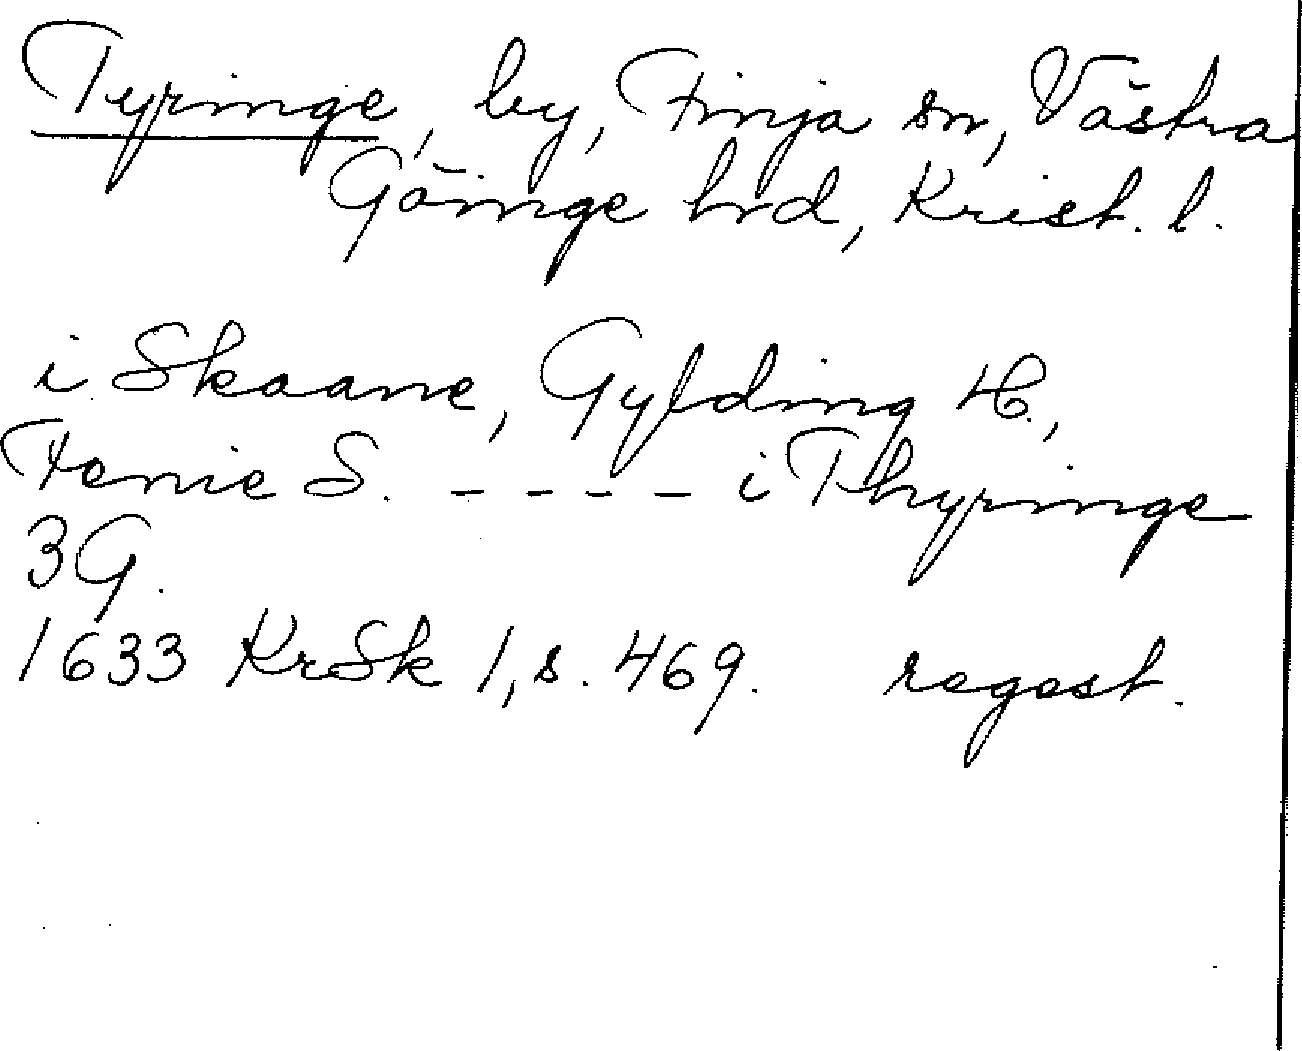 Tyringe, by, Finja sn, Västra
Göinge hrd, Krist. l.
i Skaane, Gylding H.,
Fenie S. - - - - i Thyringe
3 G.
1633 KrSk 1, s. 469. regest.